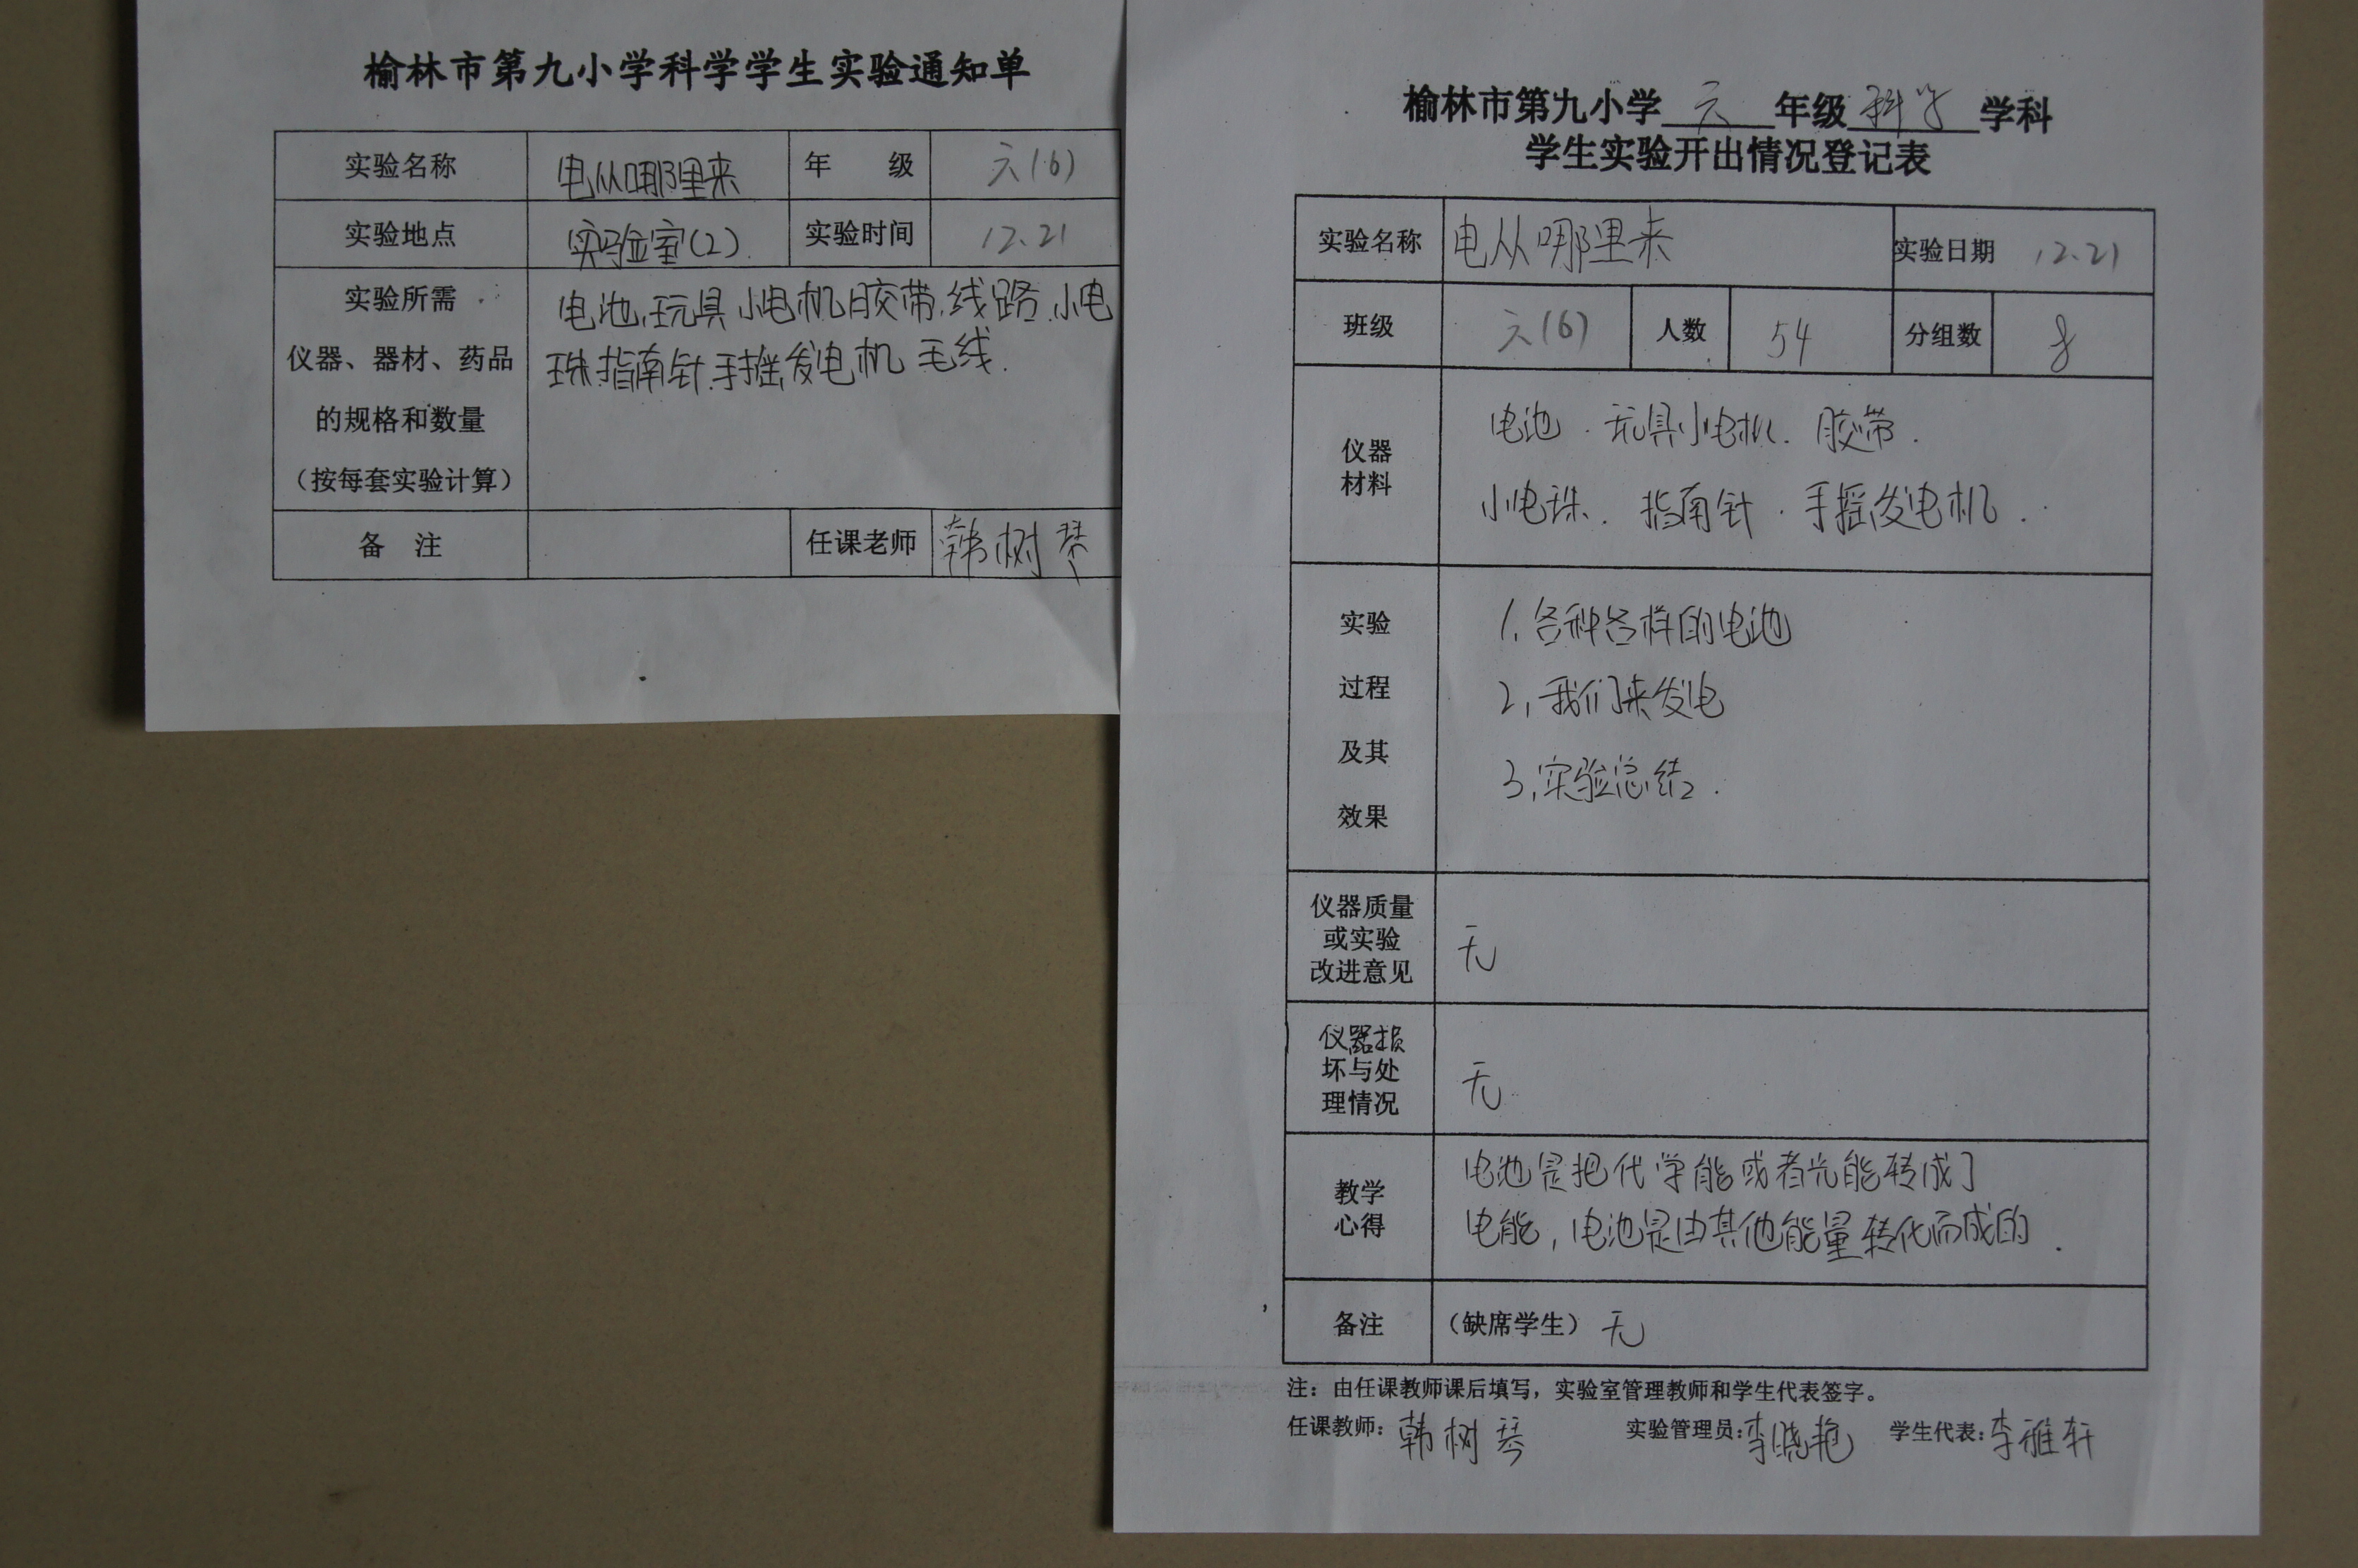 榆林市第九小学科学学生实验通知单
实验名称 电从哪里来 年 级 六(6)
实验地点 实验室(2). 实验时间 12.21
实验所需
仪器、器材、药品
的规格和数量
（按每套实验计算）
电池.玩具小电机胶带.线路.小电
珠.指南针.手摇发电机 毛线.
备 注 任课老师 韩树琴
榆林市第九小学 六 年级 科学 学科
学生实验开出情况登记表
实验名称 电从哪里来 实验日期 12.21
班级 六(6) 人数 54 分组数 8
仪器
材料
电池.玩具小电机.胶带.
小电珠.指南针.手摇发电机.
实验
过程
及其
效果
1.各种各样的电池
2.我们来发电
3.实验总结.
仪器质量
或实验
改进意见
无
仪器损
坏与处
理情况
无
教学
心得
电池是把化学能或者光能转成了
电能,电池是由其他能量转化而成的.
备注 （缺席学生）无
注：由任课教师课后填写，实验室管理教师和学生代表签字。
任课教师：韩树琴 实验管理员：李晓艳 学生代表：李雅轩